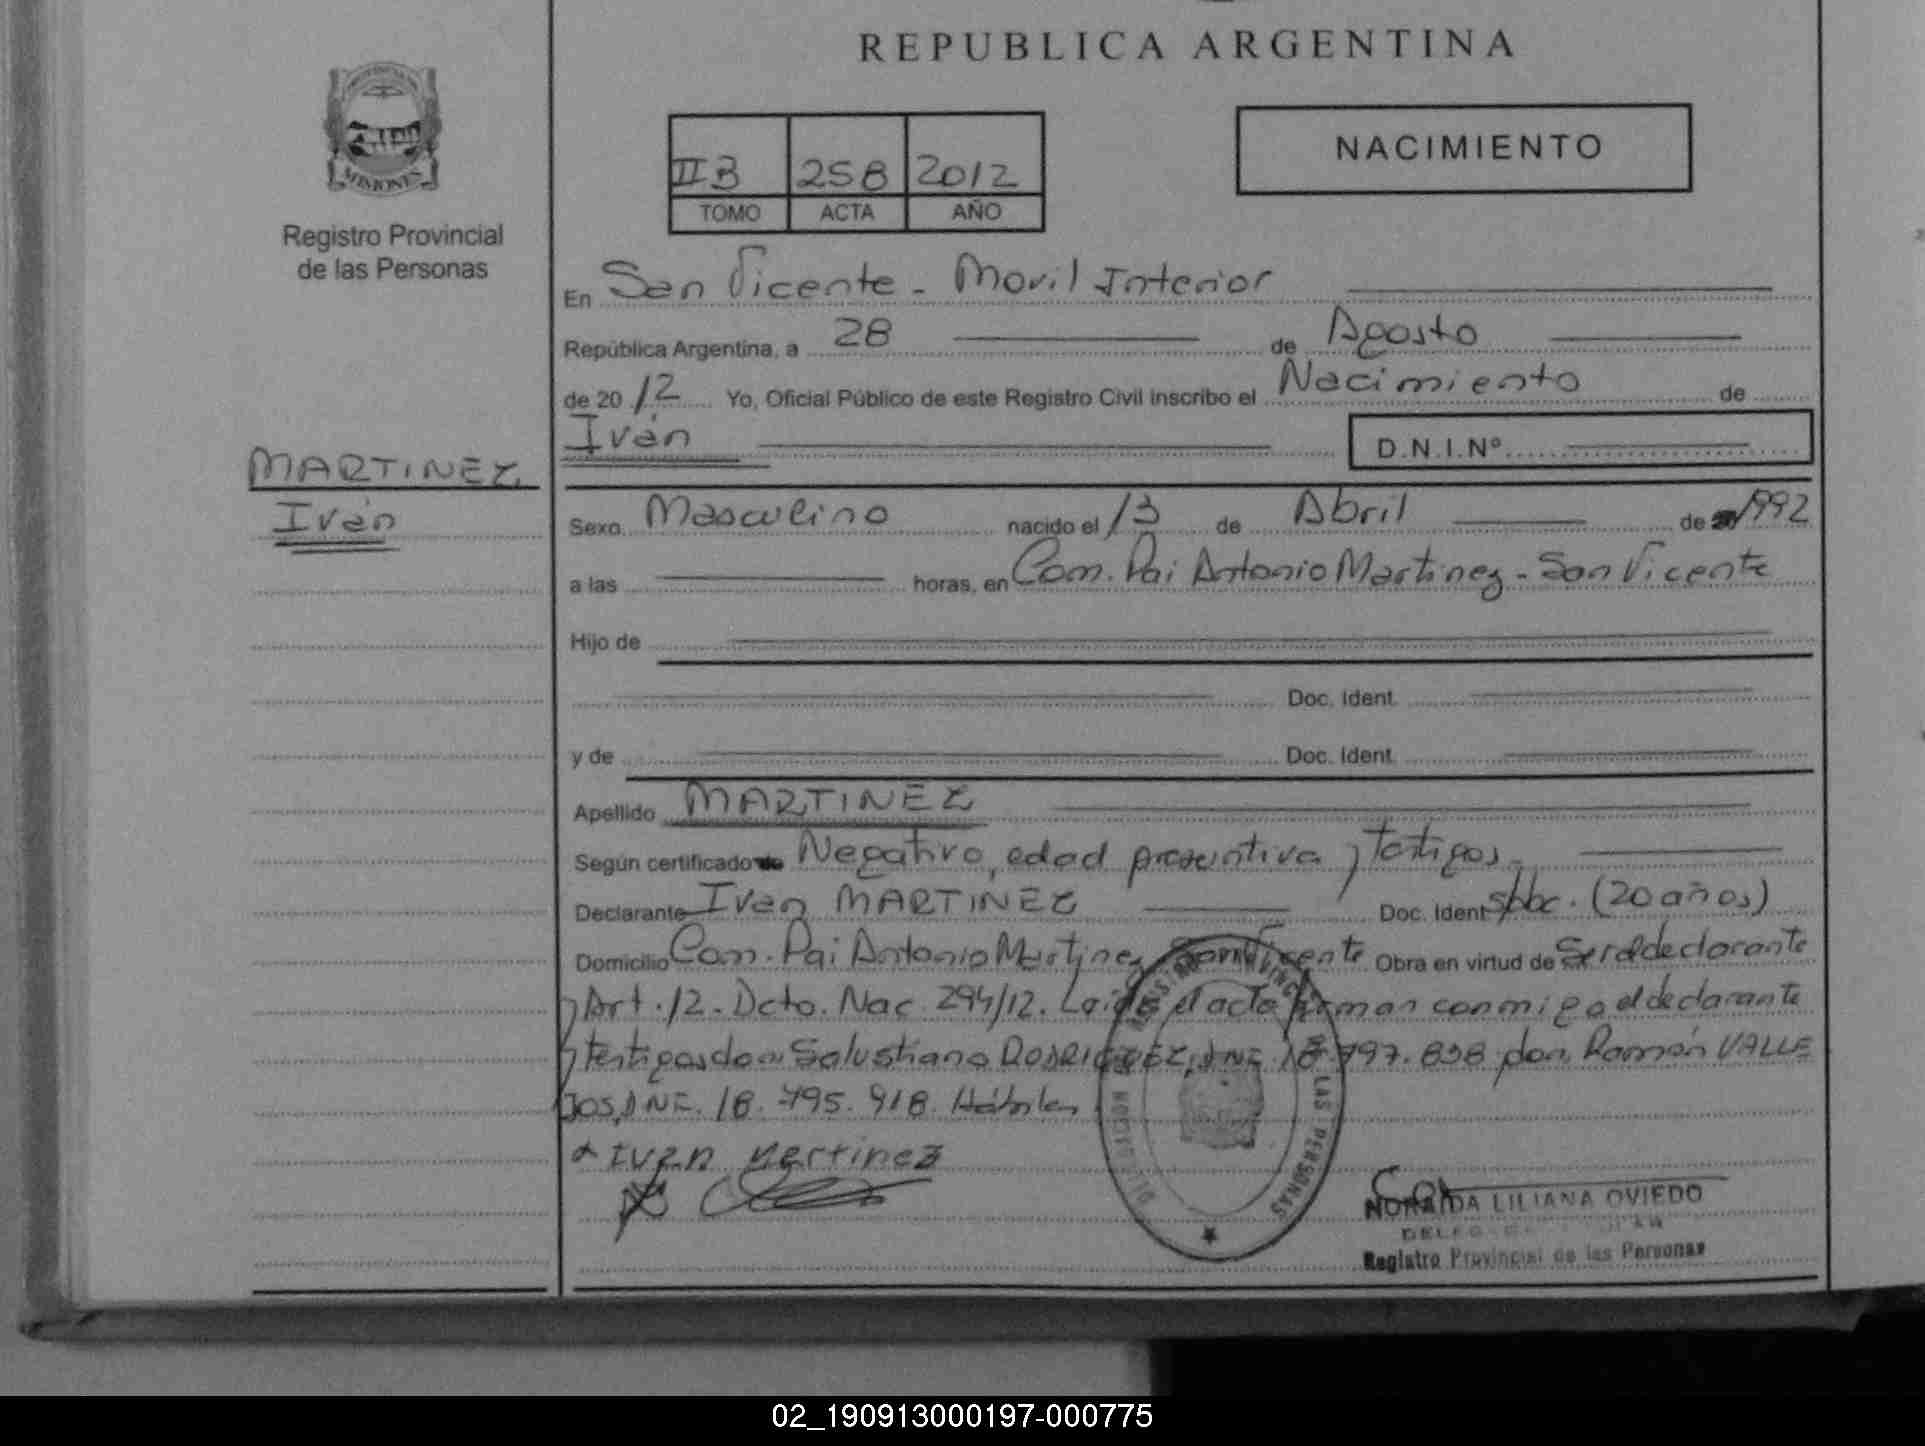 REPUBLICA ARGENTINA
MISIONES
Registro Provincial
de las Personas
IIB 258 2012
TOMO ACTA AÑO
NACIMIENTO
En San Vicente - Movil Interior
República Argentina, a 28 de Agosto
de 2012 Yo, Oficial Público de este Registro Civil inscribo el Nacimiento de
Iván D.N.I.Nº
MARTINEZ,
Iván
Sexo Masculino nacido el 13 de Abril de 1992
a las horas, en Com. Pai Antonio Martinez - San Vicente
Hijo de
Doc. Ident.
y de Doc. Ident.
Apellido MARTINEZ
Según certificado Negativo, edad presuntiva y testigos
Declarante Ivan MARTINEZ Doc. Ident (20 años)
Domicilio Com. Pai Antonio Martinez San Vicente Obra en virtud de Ser el declarante
y Art. 12 - Dcto. Nac. 294/12. Leída el acta firman conmigo el declarante
y testigos don Salustiano RODRIGUEZ, DNI. 18.797.838 y don Ramón VALLE
JOS, DNI. 18.795.918. Hábiles
Ivan Martinez
REGISTRO PROVINCIAL DE LAS PERSONAS
NORAIDA LILIANA OVIEDO
Registro Provincial de las Personas
02_190913000197-000775